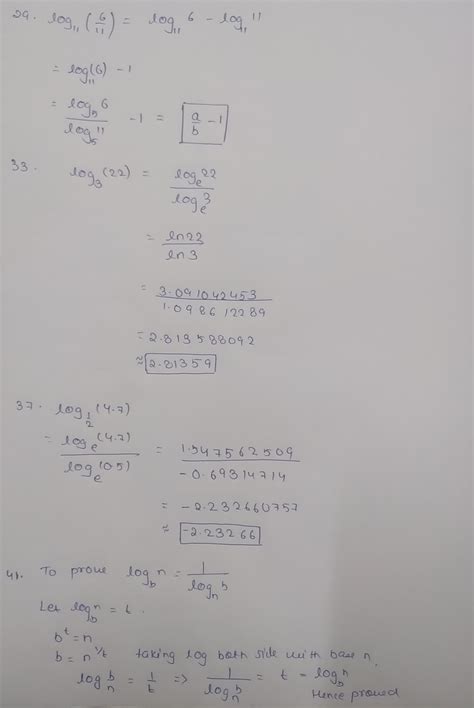 29. log₁₁(6/11) = log₁₁ 6 - log₁₁ 11
= log₁₁(6) - 1
= log₅ 6 / log₅ 11 - 1 = a/b - 1
33. log₃(22) = logₑ 22 / logₑ 3
= ln 22 / ln 3
= 3.091042453 / 1.098612289
= 2.813588092
≈ 2.81359
37. log_{1/2}(4.7)
= logₑ(4.7) / logₑ(0.5) = 1.547562509 / -0.69314714
= -2.232660757
≈ -2.23266
41. To prove log_b n = 1 / log_n b
Let log_b n = t.
b^t = n
b = n^{1/t} taking log both side with base n.
log_n b = 1/t => 1 / log_n b = t = log_b n
Hence proved